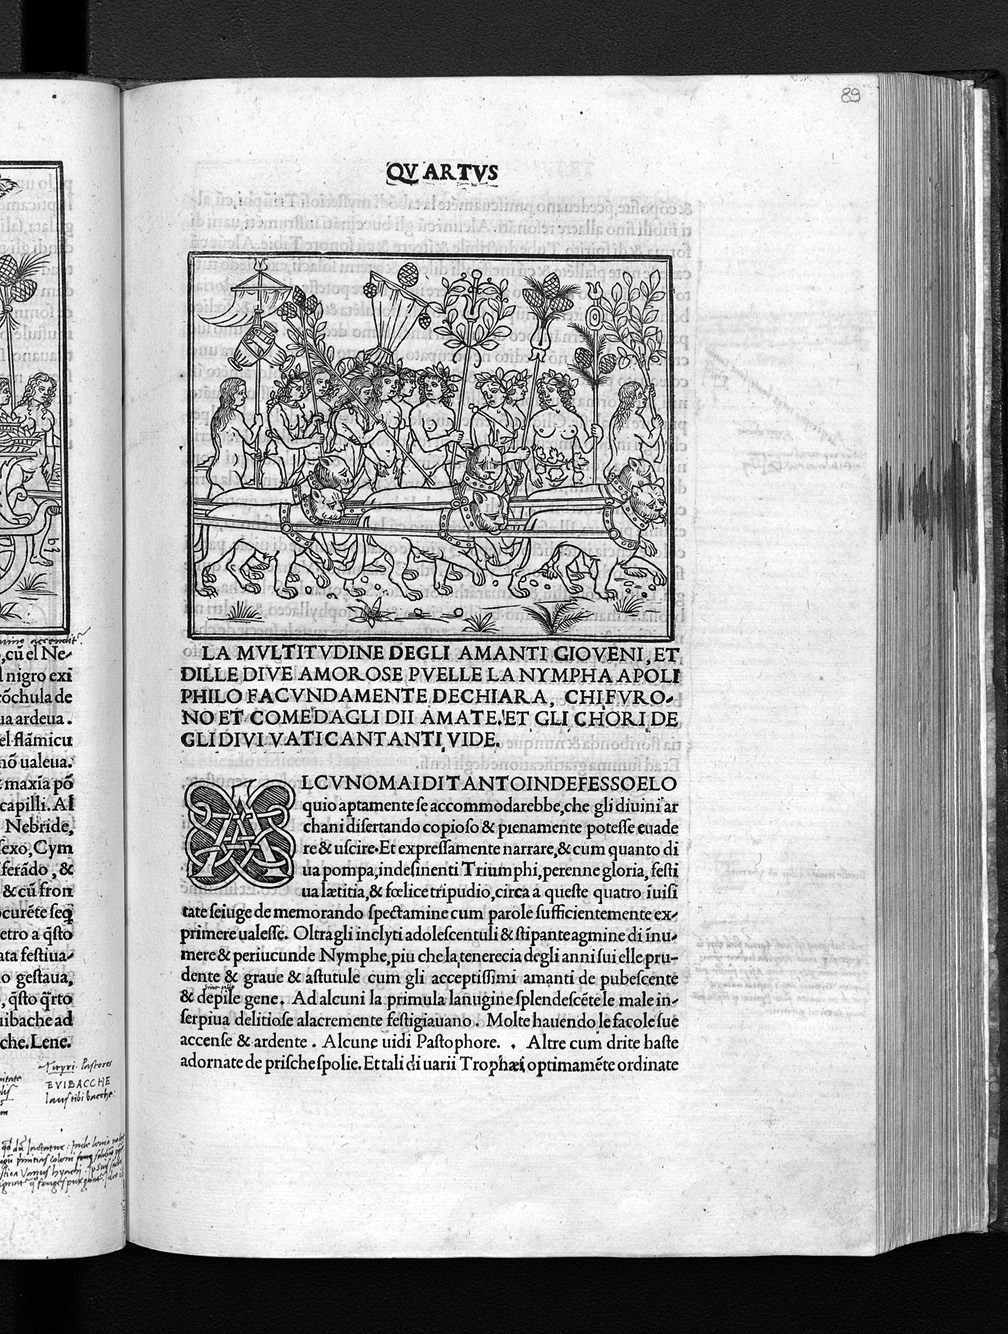 89
QVARTVS
LA MVLTITVDINE DEGLI AMANTI GIOVENI, ET
DILLE DIVE AMOROSE PVELLE LA NYMPHA APOLI
PHILO FACVNDAMENTE DECHIARA, CHI FVRO-
NO ET COME DAGLI DII AMATE. ET GLI CHORI DE
GLI DIVI VATI CANTANTI VIDE.
ALCVNO MAI DI TANTO INDEFESSO ELO
quio aptamente se accommodarebbe, che gli diuini ar
chani disertando copioso & pienamente potesse euade
re & uscire. Et expressamente narrare, & cum quanto di
ua pompa, indesinenti Triumphi, perenne gloria, festi
ua lætitia, & fœlice tripudio, circa a queste quatro iuisi
tate seiuge de memorando spectamine cum parole sufficientemente ex-
primere ualesse. Oltra gli inclyti adolescentuli & stipante agmine di inu-
mere & periucunde Nymphe, piu che la tenerecia degli anni sui elle pru-
dente & graue & astutule cum gli acceptissimi amanti de pubescente
& depile gene. Ad alcuni la primula lanugine splendescẽte le male in-
serpiua delitiose alacremente festigiauano. Molte hauendo le facole sue
accense & ardente. Alcune uidi Pastophore. Altre cum drite haste
adornate de prische spolie. Et tali di uarii Trophæi optimamẽte ordinate
, cũ el Ne-
nigro exi
cõchula de
ua ardeua.
el flãmicu
nõ ualeua.
maxĩa põ
capilli. Al
Nebride,
sexo, Cym
ferãdo, &
& cũ fron
curẽte seq
etro a q̃sto
ata festiua-
o gestaua,
, q̃sto q̃rto
uibache ad
che. Lene.
EVIBACCHE